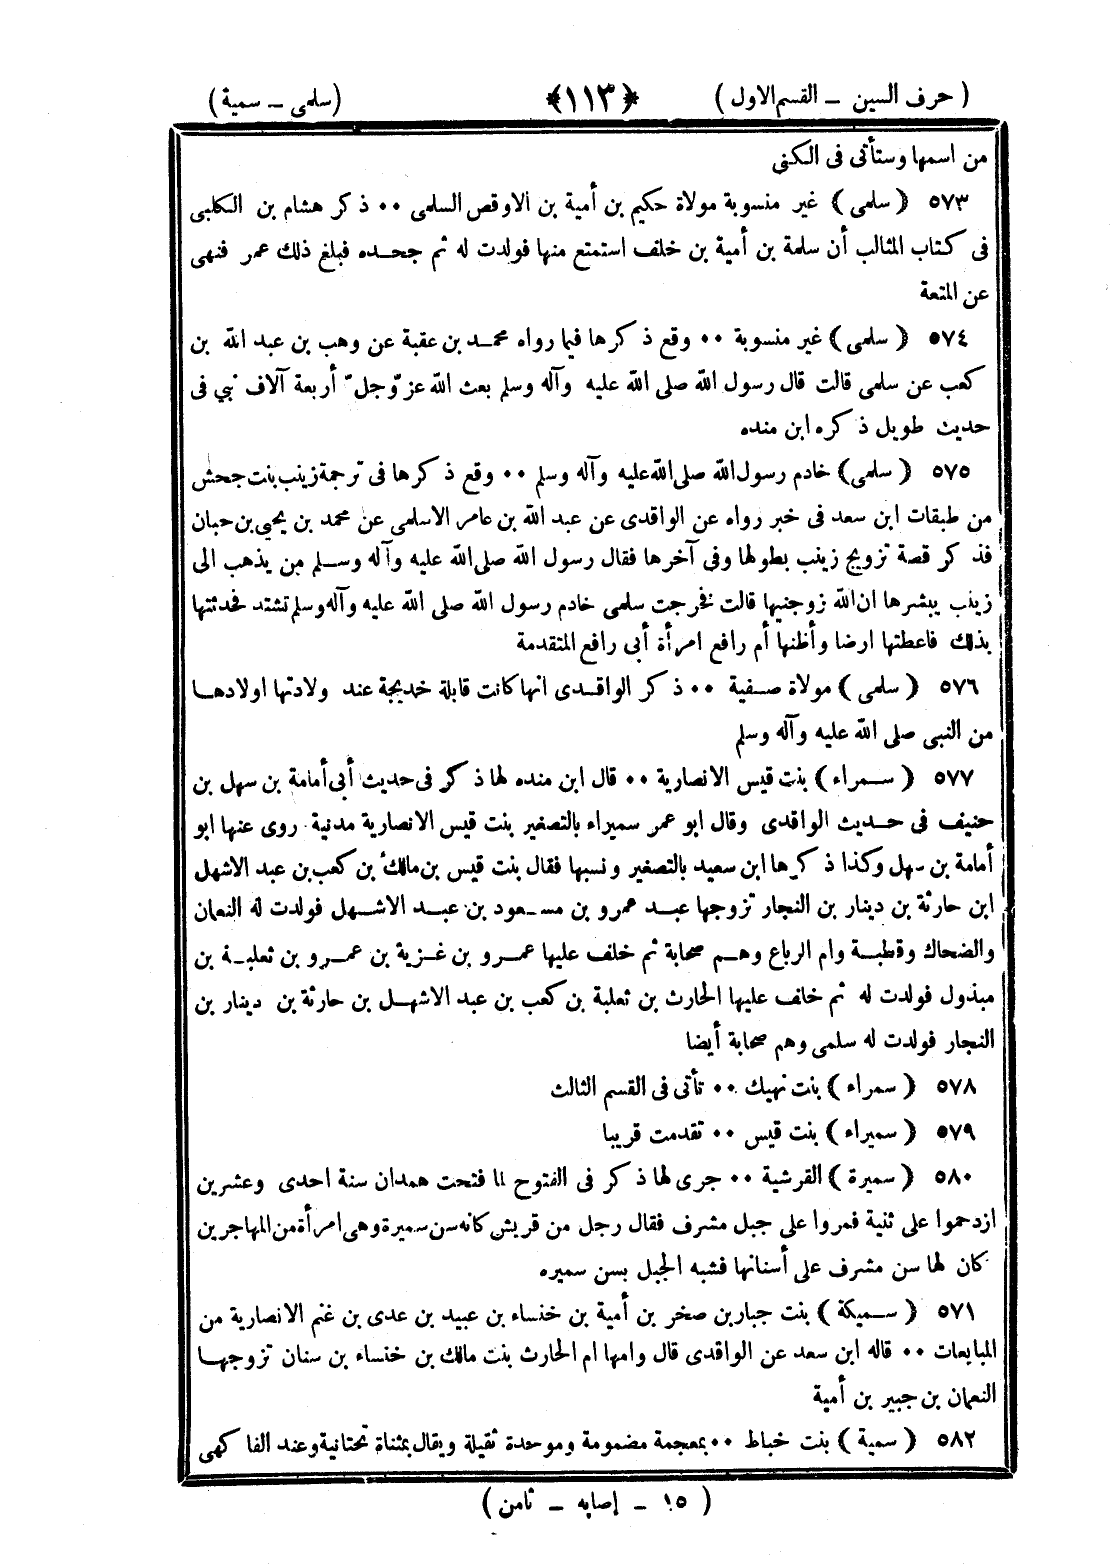 ( حرف السين – القسم الاول ) ﴿١١٣﴾ (سلمى – سمية )
من اسمها وستأتى فى الكنى
٥٧٣ ( سلمى ) غير منسوبة مولاة حكيم بن أمية بن الاوقص السلمى ٠٠ ذكر هشام بن الكلبى
فى كتاب المثالب أن سلمة بن أمية بن خلف استمتع منها فولدت له ثم جحده فبلغ ذلك عمر فنهى
عن المتعة
٥٧٤ ( سلمى ) غير منسوبة ٠٠ وقع ذكرها فيما رواه محمد بن عقبة عن وهب بن عبد الله بن
كعب عن سلمى قالت قال رسول الله صلى الله عليه وآله وسلم بعث الله عزّ وجلّ أربعة آلاف نبي فى
حديث طويل ذكره ابن منده
٥٧٥ ( سلمى ) خادم رسول الله صلى الله عليه وآله وسلم ٠٠ وقع ذكرها فى ترجمة زينب بنت جحش
من طبقات ابن سعد فى خبر رواه عن الواقدى عن عبد الله بن عامر الاسلمى عن محمد بن يحيى بن حبان
فذكر قصة تزويج زينب بطولها وفى آخرها فقال رسول الله صلى الله عليه وآله وسلم من يذهب الى
زينب يبشرها ان الله زوجنيها قالت فخرجت سلمى خادم رسول الله صلى الله عليه وآله وسلم تشتد فحدثتها
بذلك فاعطتها ارضا وأظنها أم رافع امرأة أبى رافع المتقدمة
٥٧٦ ( سلمى ) مولاة صفية ٠٠ ذكر الواقدى انها كانت قابلة خديجة عند ولادتها اولادها
من النبى صلى الله عليه وآله وسلم
٥٧٧ ( سمراء ) بنت قيس الانصارية ٠٠ قال ابن منده لها ذكر فى حديث أبى أمامة بن سهل بن
حنيف فى حديث الواقدى وقال ابو عمر سميراء بالتصغير بنت قيس الانصارية مدنية روى عنها ابو
أمامة بن سهل وكذا ذكرها ابن سعيد بالتصغير ونسبها فقال بنت قيس بن مالك بن كعب بن عبد الاشهل
ابن حارثة بن دينار بن النجار تزوجها عبد عمرو بن مسعود بن عبد الاشهل فولدت له النعمان
والضحاك وقطبة وام الرباع وهم صحابة ثم خلف عليها عمرو بن غزية بن عمرو بن ثعلبة بن
مبذول فولدت له ثم خلف عليها الحارث بن ثعلبة بن كعب بن عبد الاشهل بن حارثة بن دينار بن
النجار فولدت له سلمى وهم صحابة أيضا
٥٧٨ ( سمراء ) بنت نهيك ٠٠ تأتى فى القسم الثالث
٥٧٩ ( سميراء ) بنت قيس ٠٠ تقدمت قريبا
٥٨٠ ( سميرة ) القرشية ٠٠ جرى لها ذكر فى الفتوح لما فتحت همدان سنة احدى وعشرين
ازدحموا على ثنية فمروا على جبل مشرف فقال رجل من قريش كانه سن سميرة وهى امرأة من المهاجرين
كان لها سن مشرف على أسنانها فشبه الجبل بسن سميره
٥٧١ ( سميكة ) بنت جبار بن صخر بن أمية بن خنساء بن عبيد بن عدى بن غنم الانصارية من
المبايعات ٠٠ قاله ابن سعد عن الواقدى قال وامها ام الحارث بنت مالك بن خنساء بن سنان تزوجها
النعمان بن جبير بن أمية
٥٨٢ ( سمية ) بنت خباط ٠٠ بمعجمة مضمومة وموحدة ثقيلة ويقال بمثناة تحتانية وعند الفاكهى
( ١٥ – إصابه – ثامن )